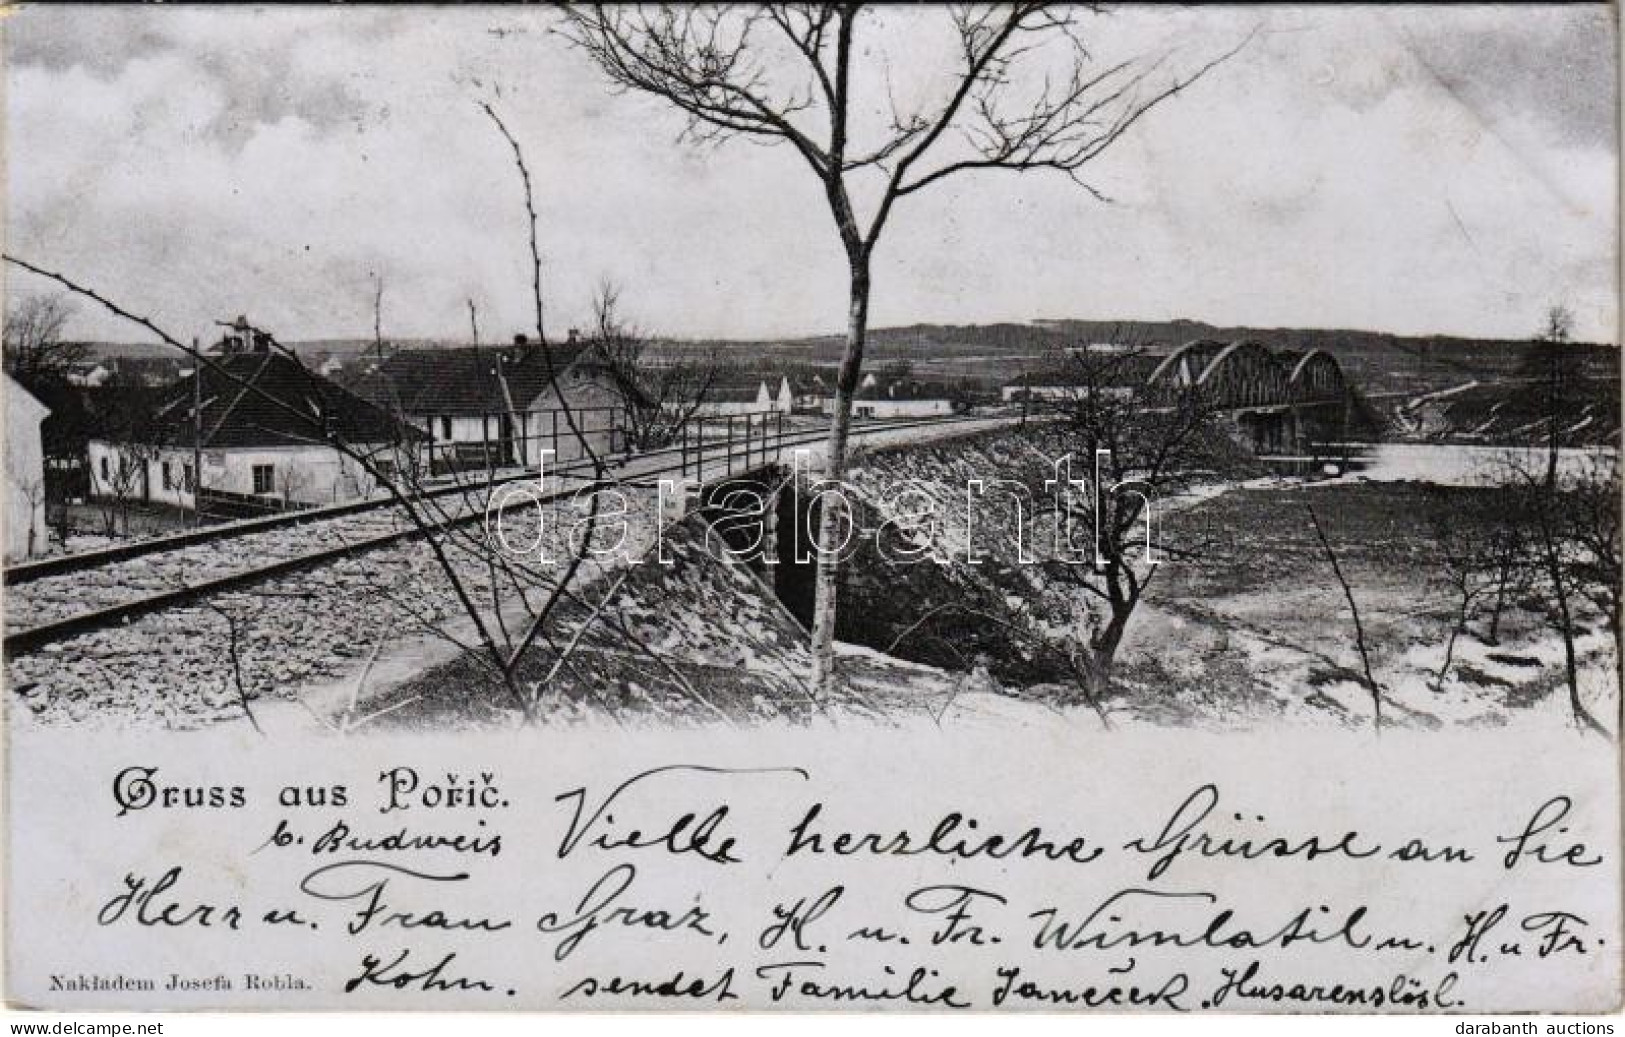 darabanth
Gruss aus Pořič.
b. Budweis Vielle herzliche Grüsse an Sie
Herr u. Frau Graz, H. u. Fr. Wimlatil u. H. u Fr.
Kohn. sendet Familie Janeček. Husarenslösl.
Nakładem Josefa Robla.
www.delcampe.net
darabanth auctions